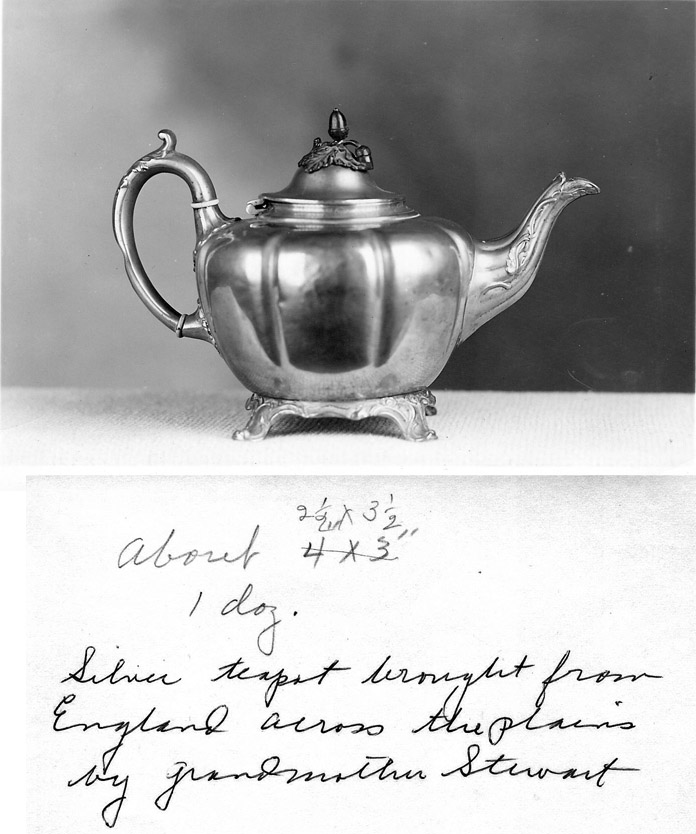 2½ x 3½"
About 4 x 3"
1 doz.
Silver teapot brought from
England across the plains
by grandmother Stewart